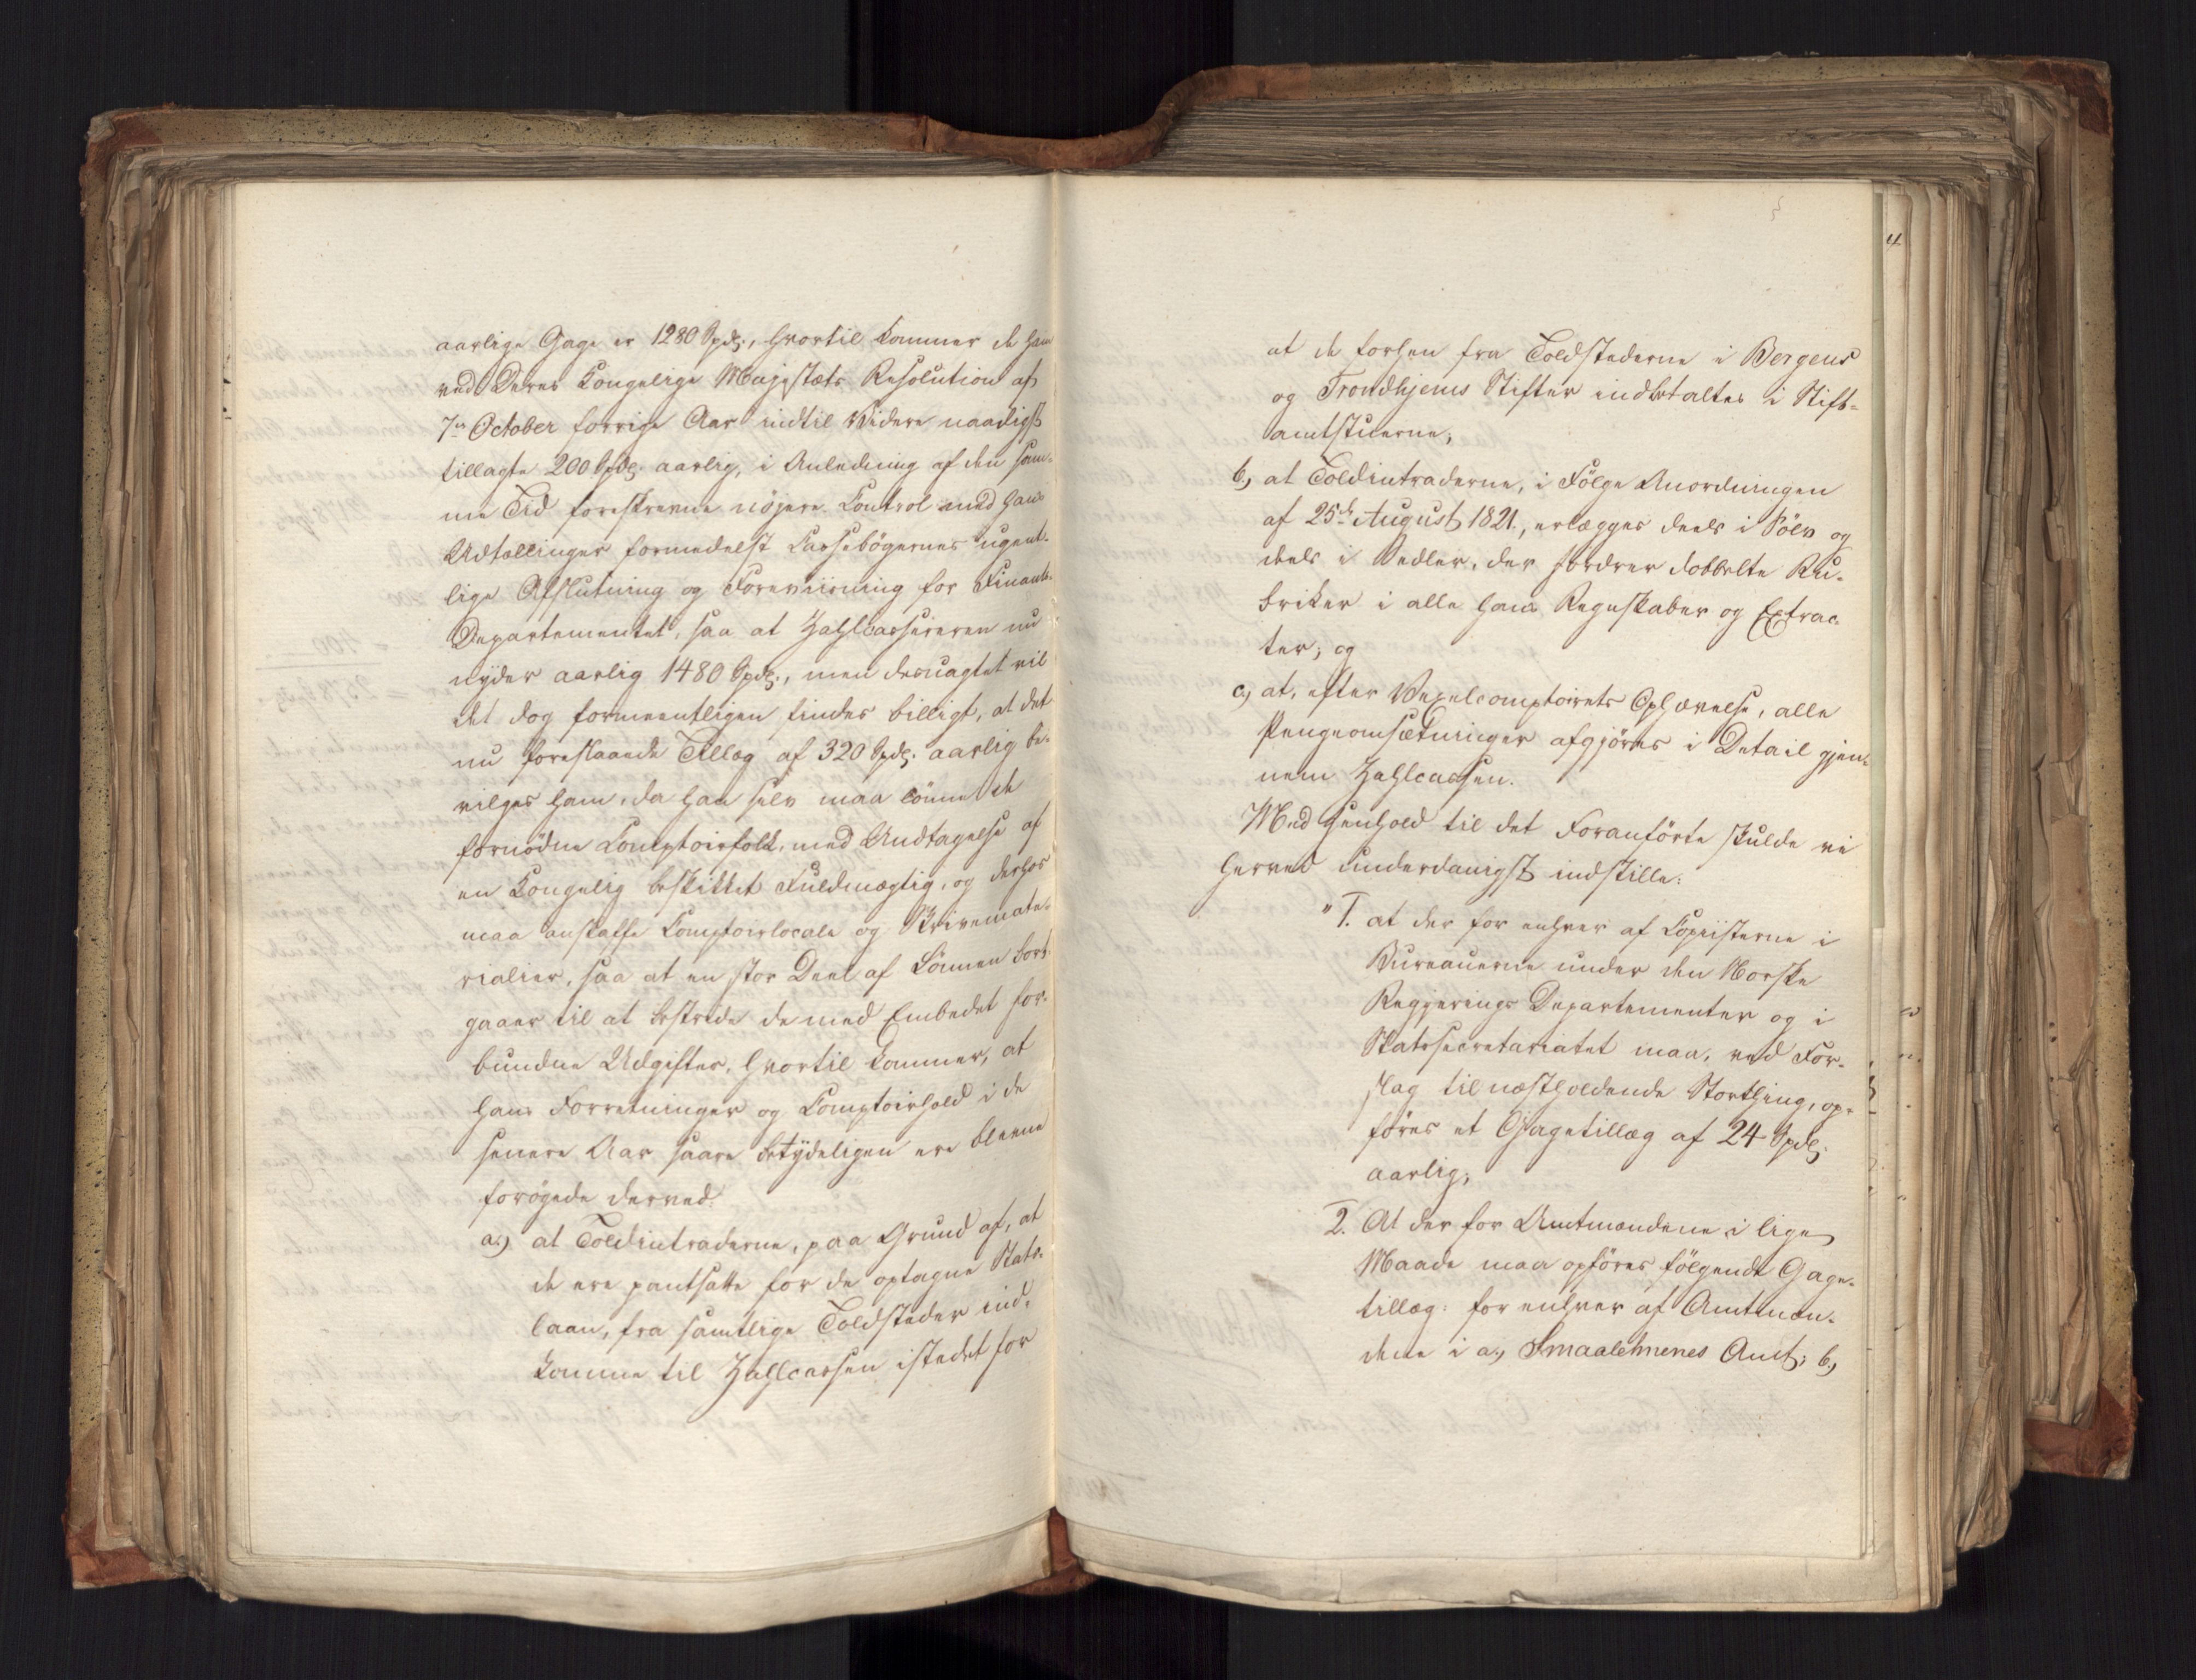 aarlige Gage er 1280 Spdlr., hvortil kommer de ham
ved Deres Kongelige Majestæts Resolution af
7de October forrige Aar indtil Videre naadigst
tillagte 200 Spdlr. aarlig, i Anledning af den sam-
me Tid foreskrevne nöjere Control med hans
Udtællinger formedelst Cassebögernes ugent-
lige Afslutning og Foreviisning for Finants-
Departementet, saa at Zahlcassereren nu
nyder aarlig 1480 Spdlr., men desuagtet vil
det dog formeentligen findes billigt, at det
nu foreslaaede Tillæg af 320 Spdlr. aarlig be-
vilges ham, da han selv maa lönne de
fornödne Comptoirfolk, med Undtagelse af
en Kongelig beskikket Fuldmægtig, og derhos
maa anskaffe Comptoirlocale og Skrivemate-
rialier, saa at en stor Deel af Lönnen bort-
gaaer til at bestride de med Embedet for-
bundne Udgifter, hvortil kommer, at
hans Forretninger og Comptoirhold i de
senere Aar saare betydeligen ere blevne
forögede derved:
a.) at Toldintraderne, paa Grund af, at
de ere pantsatte for de optagne Stats-
laan, fra samtlige Toldsteder ind-
komme til Zahlcassen istedet for
4
at de forhen fra Toldstederne i Bergens
og Trondhjems Stifter indbetaltes i Stift-
amtstuerne;
b.) at Toldintraderne, i Fölge Anordningen
af 25de August 1821., erlægges deels i Sölv og
deels i Sedler, der fordrer dobbelte Ru-
briker i alle hans Regnskaber og Extrac-
ter; og
c.) at, efter Vexelcomptoirets Ophævelse, alle
Pengeomsætninger afgjöres i Detail gjen-
nem Zahlcassen.
Med Henhold til det Foranförte skulde vi
herved underdanigst indstille:
"1. at der for enhver af Copiisterne i
Bureauerne under den Norske
Regjerings Departementer og i
Statssecretariatet maa, ved For-
slag til næstholdende Storthing, op-
föres et Gagetillæg af 24 Spdlr.
aarlig;
2. At der for Amtmændene i lige
Maade maa opföres fölgende Gage-
tillæg: for enhver af Amtmæn-
dene i a.) Smaalehnenes Amt; b.)